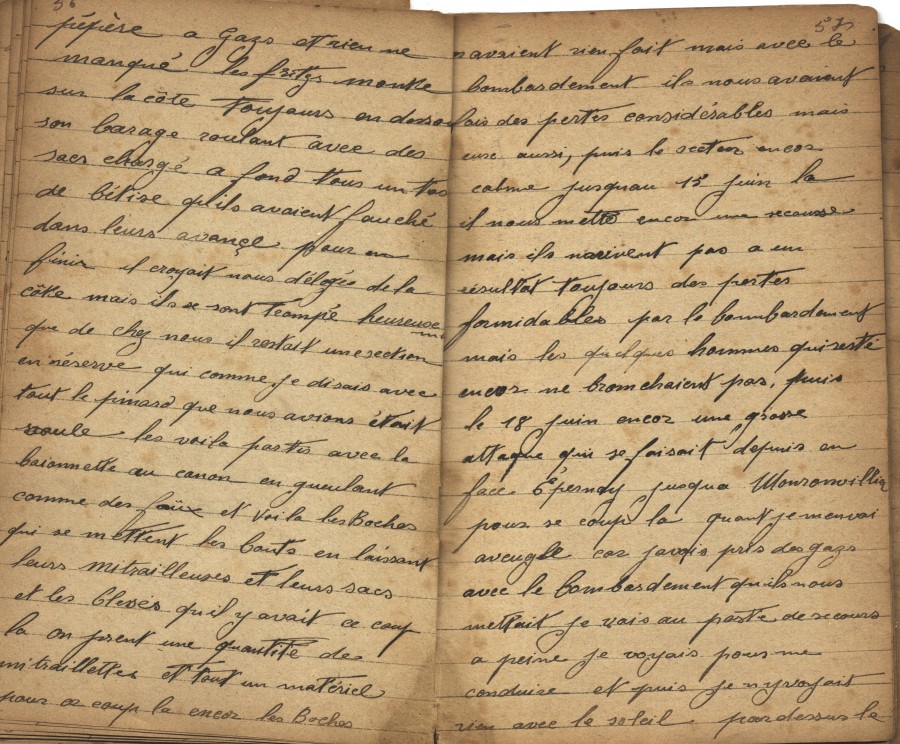 56
pépère a gazs et rien ne
manqué les fritz monte
sur la côte toujours en dessou
son barage roulant avec des
sacs chargé a fond tous un tas
de bétise qu'ils avaient fauché
dans leurs avançe pour en
finir il croyait nous délogée de la
côte mais ils se sont trompé heureuse-
ment
que de chez nous il restait une section
en réserve qui comme je disais avec
tout le pinard que nous avions était
soule les voila partis avec la
baionnette au canon en gueulant
comme des foux et voila les Boches
qui se mettent les bouts en laissant
leurs mitrailleuses et leurs sacs
et les blesés qu'il y avait ce coup
la on prent une quantité de
mitraillettes et tout un matériel
pour ce coup la encor les Boches
57
navaient rien fait mais avec le
bombardement ils nous avaient
fais des pertes considérables mais
eux aussi, puis le secteur encor
calme jusquau 15 juin la
il nous mette encor une secousse
mais ils narivent pas a un
résultat toujours des pertes
formidables par le bombardement
mais les quelques hommes qui reste
encor ne bronchaient pas, puis
le 18 juin encor une grosse
attaque qui se faisait depuis en
face Épernay jusqua Monronvillier
pour se coup la quant je menvai
aveugle car javais pris des gazs
avec le bombardement qu'ils nous
mettait je vais au poste de secours
a peine je voyais pour me
conduire et puis je ny voyait
rien avec le soleil par dessus le